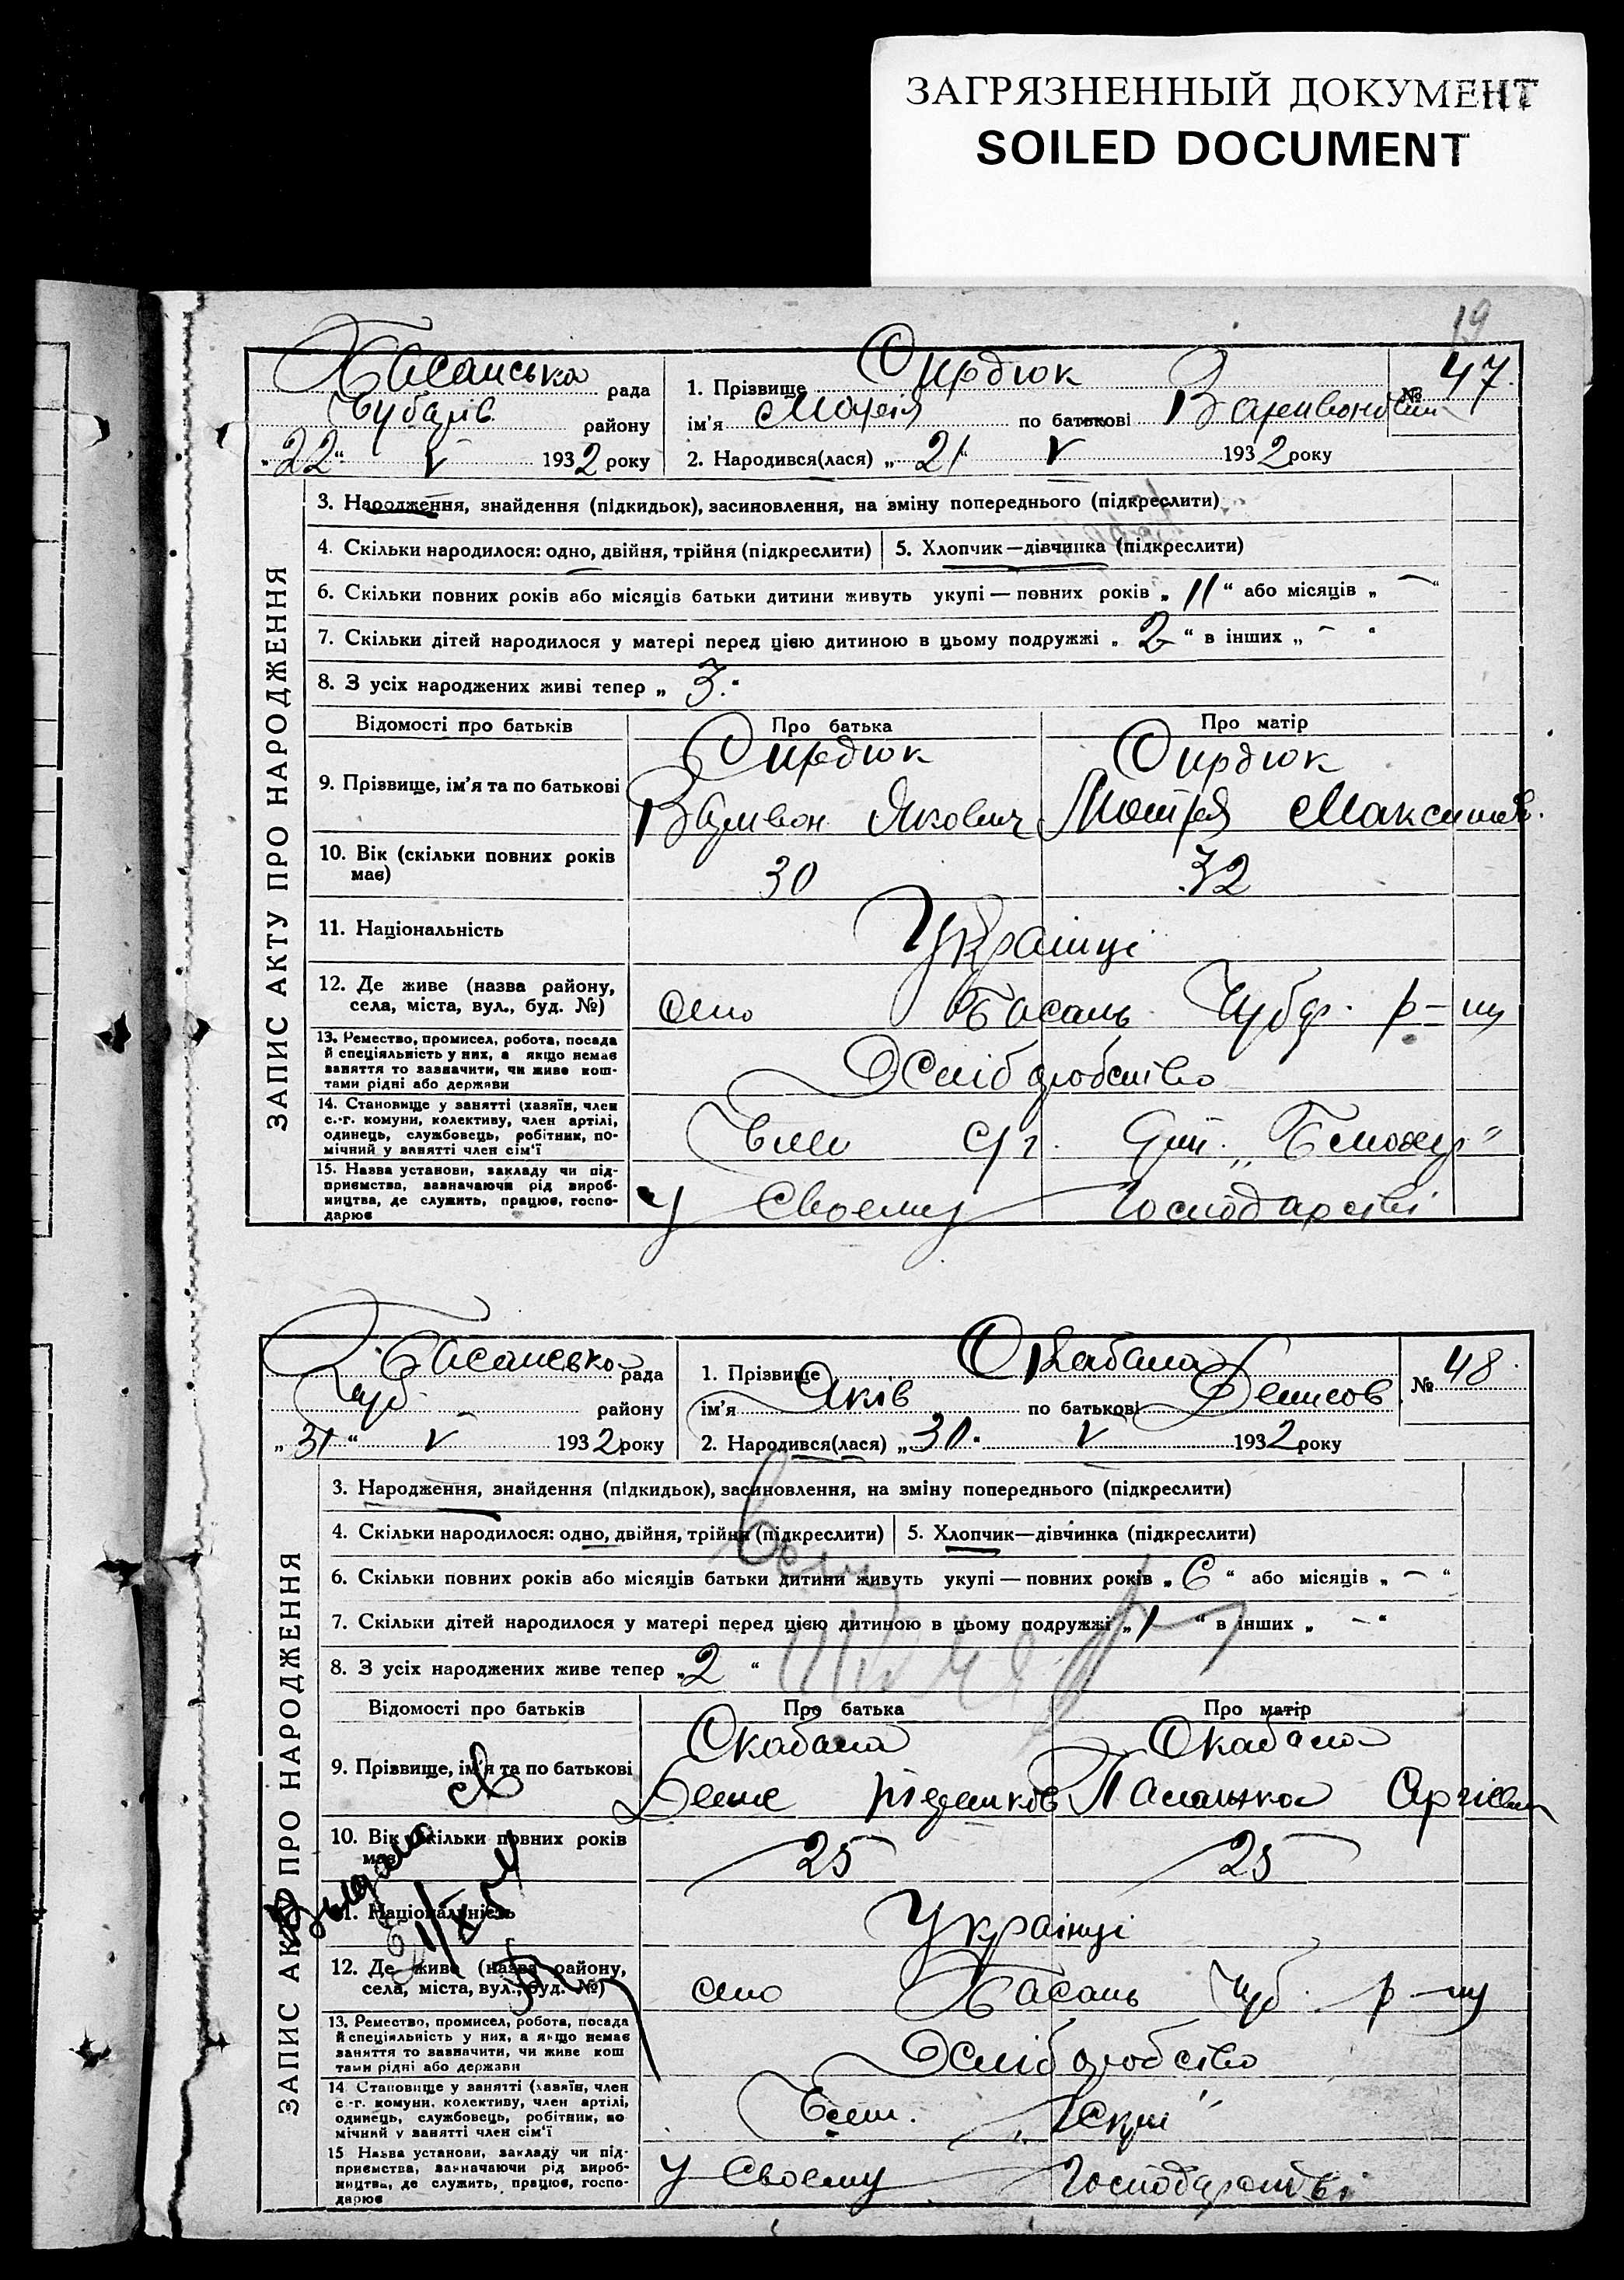 ЗАГРЯЗНЕННЫЙ ДОКУМЕНТ
SOILED DOCUMENT
19
Басанська рада
району
"22" V 1932 року
1. Прізвище Сирдюк
№ 47
ім'я Марія по батькові
2. Народився(лася) "21" V 1932 року
ЗАПИС АКТУ ПРО НАРОДЖЕННЯ
3. Народження, знайдення (підкидьок), засиновлення, на зміну попереднього (підкреслити)
4. Скільки народилося: одно, двійня, трійня (підкреслити) 5. Хлопчик—дівчинка (підкреслити)
6. Скільки повних років або місяців батьки дитини живуть укупі — повних років „11“ або місяців „—“
7. Скільки дітей народилося у матері перед цією дитиною в цьому подружжі „2“ в інших „—“
8. З усіх народжених живі тепер „3“
Відомості про батьків Про батька Про матір
9. Прізвище, ім'я та по батькові
Сирдюк Сирдюк
Якович
10. Вік (скільки повних років має) 30 32
11. Національність Українці
12. Де живе (назва району,
села, міста, вул., буд. №)
село Басань Чуб. р-ну
13. Ремество, промисел, робота, посада
й спеціяльність у них, а якщо немає
заняття то зазначити, чи живе кош-
тами рідні або держави
14. Становище у занятті (хазяїн, член
с.-г. комуни, колективу, член артілі,
одинець, службовець, робітник, по-
мічний у занятті член сім'ї
15. Назва установи, закладу чи під-
приємства, зазначаючи рід вироб-
ництва, де служить, працює, госпо-
дарює
У Своєму Господарстві
Басанська рада
Чуб. району
"31" V 1932 року
1. Прізвище
№ 48
ім'я Яків по батькові Денисов
2. Народився(лася) „30“ V 1932 року
ЗАПИС АКТУ ПРО НАРОДЖЕННЯ
3. Народження, знайдення (підкидьок), засиновлення, на зміну попереднього (підкреслити)
4. Скільки народилося: одно, двійня, трійня (підкреслити) 5. Хлопчик—дівчинка (підкреслити)
6. Скільки повних років або місяців батьки дитини живуть укупі — повних років „6“ або місяців „—“
7. Скільки дітей народилося у матері перед цією дитиною в цьому подружжі „1“ в інших „—“
8. З усіх народжених живе тепер „2“
Відомості про батьків Про батька Про матір
9. Прізвище, ім'я та по батькові
10. Вік (скільки повних років має) 25 25
11. Національність Українці
12. Де живе (назва району,
села, міста, вул., буд. №)
село Басань Чуб. р-ну
13. Ремество, промисел, робота, посада
й спеціяльність у них, а якщо немає
заняття то зазначити, чи живе кош
тами рідні або держави
14 Становище у занятті (хазяїн, член
с-г. комуни, колективу, член артілі,
одинець, службовець, робітник, по
мічний у занятті член сім'ї
15 Назва установи, закладу чи під-
приємства, зазначаючи рід вироб-
ництва, де служить, працює, госпо-
дарює
У Своєму Господарстві